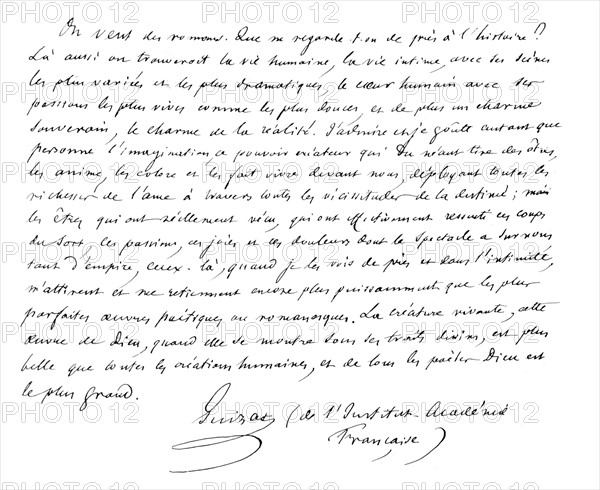 On veut des romans. Que ne regarde-t-on de près à l'histoire ?
Là aussi on trouverait la vie humaine, la vie intime, avec ses scènes
les plus variées et les plus dramatiques, le cœur humain avec ses
passions les plus vives comme les plus douces, et de plus un charme
souverain, le charme de la réalité. J'admire et je goûte autant que
personne l'imagination ce pouvoir créateur qui du néant tire des êtres,
les anime, les colore et les fait vivre devant nous, déployant toutes les
richesses de l'âme à travers toutes les vicissitudes de la destinée ; mais
les êtres qui ont réellement vécu, qui ont effectivement ressenti ces coups
du sort, ces passions, ces joies et ces douleurs dont le spectacle a sur nous
tant d'empire, ceux-là, quand je les vois de près et dans l'intimité,
m'attirent et me retiennent encore plus puissamment que les plus
parfaites œuvres poétiques ou romanesques. La créature vivante, cette
œuvre de Dieu, quand elle se montre sous ses traits divins, est plus
belle que toutes les créations humaines, et de tous les poètes Dieu est
le plus grand.
Guizot (de l'Institut-Académie
Française)
PHOTO 12